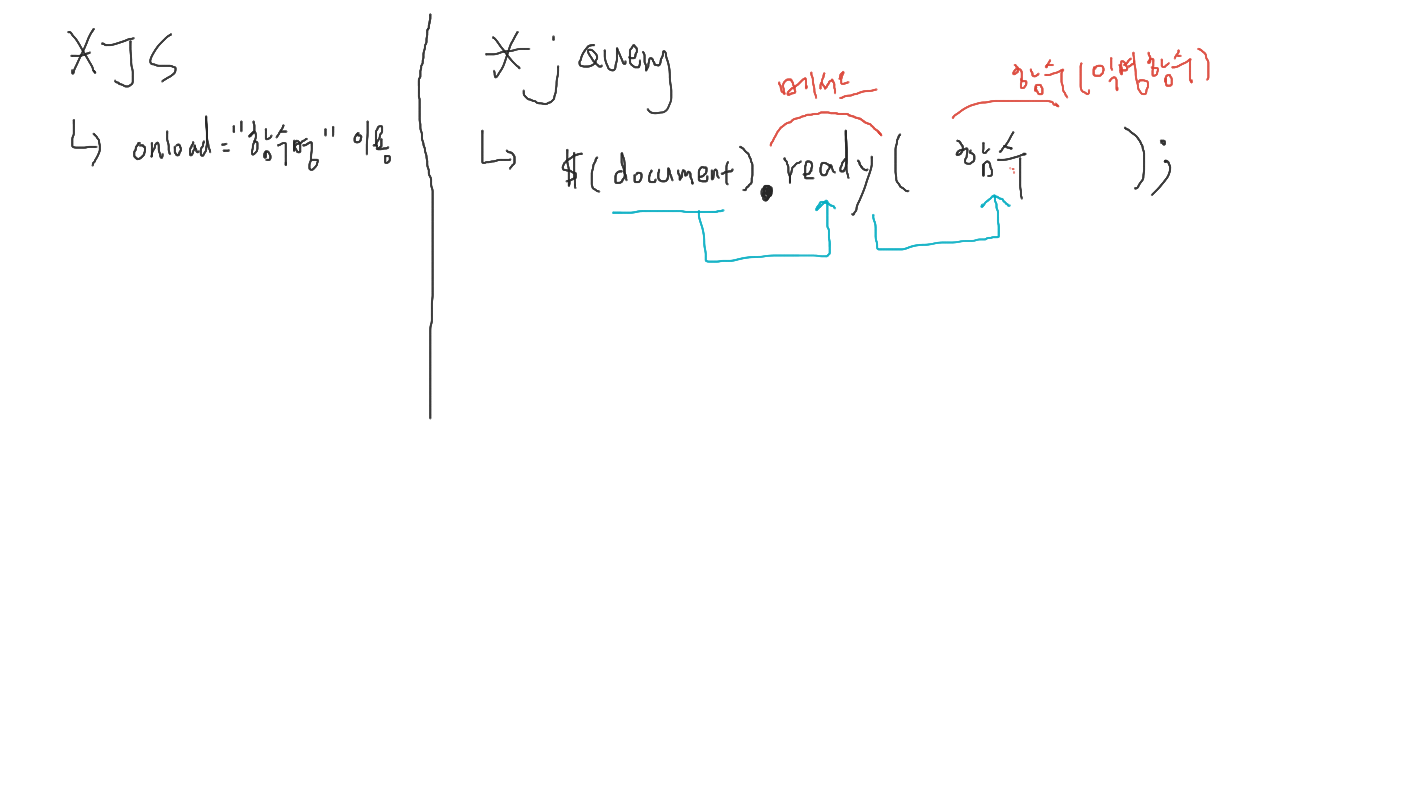 *JS
↳ onload="함수명" 이용
*jquery
메서드
함수(익명함수)
↳ $(document).ready( 함수 );